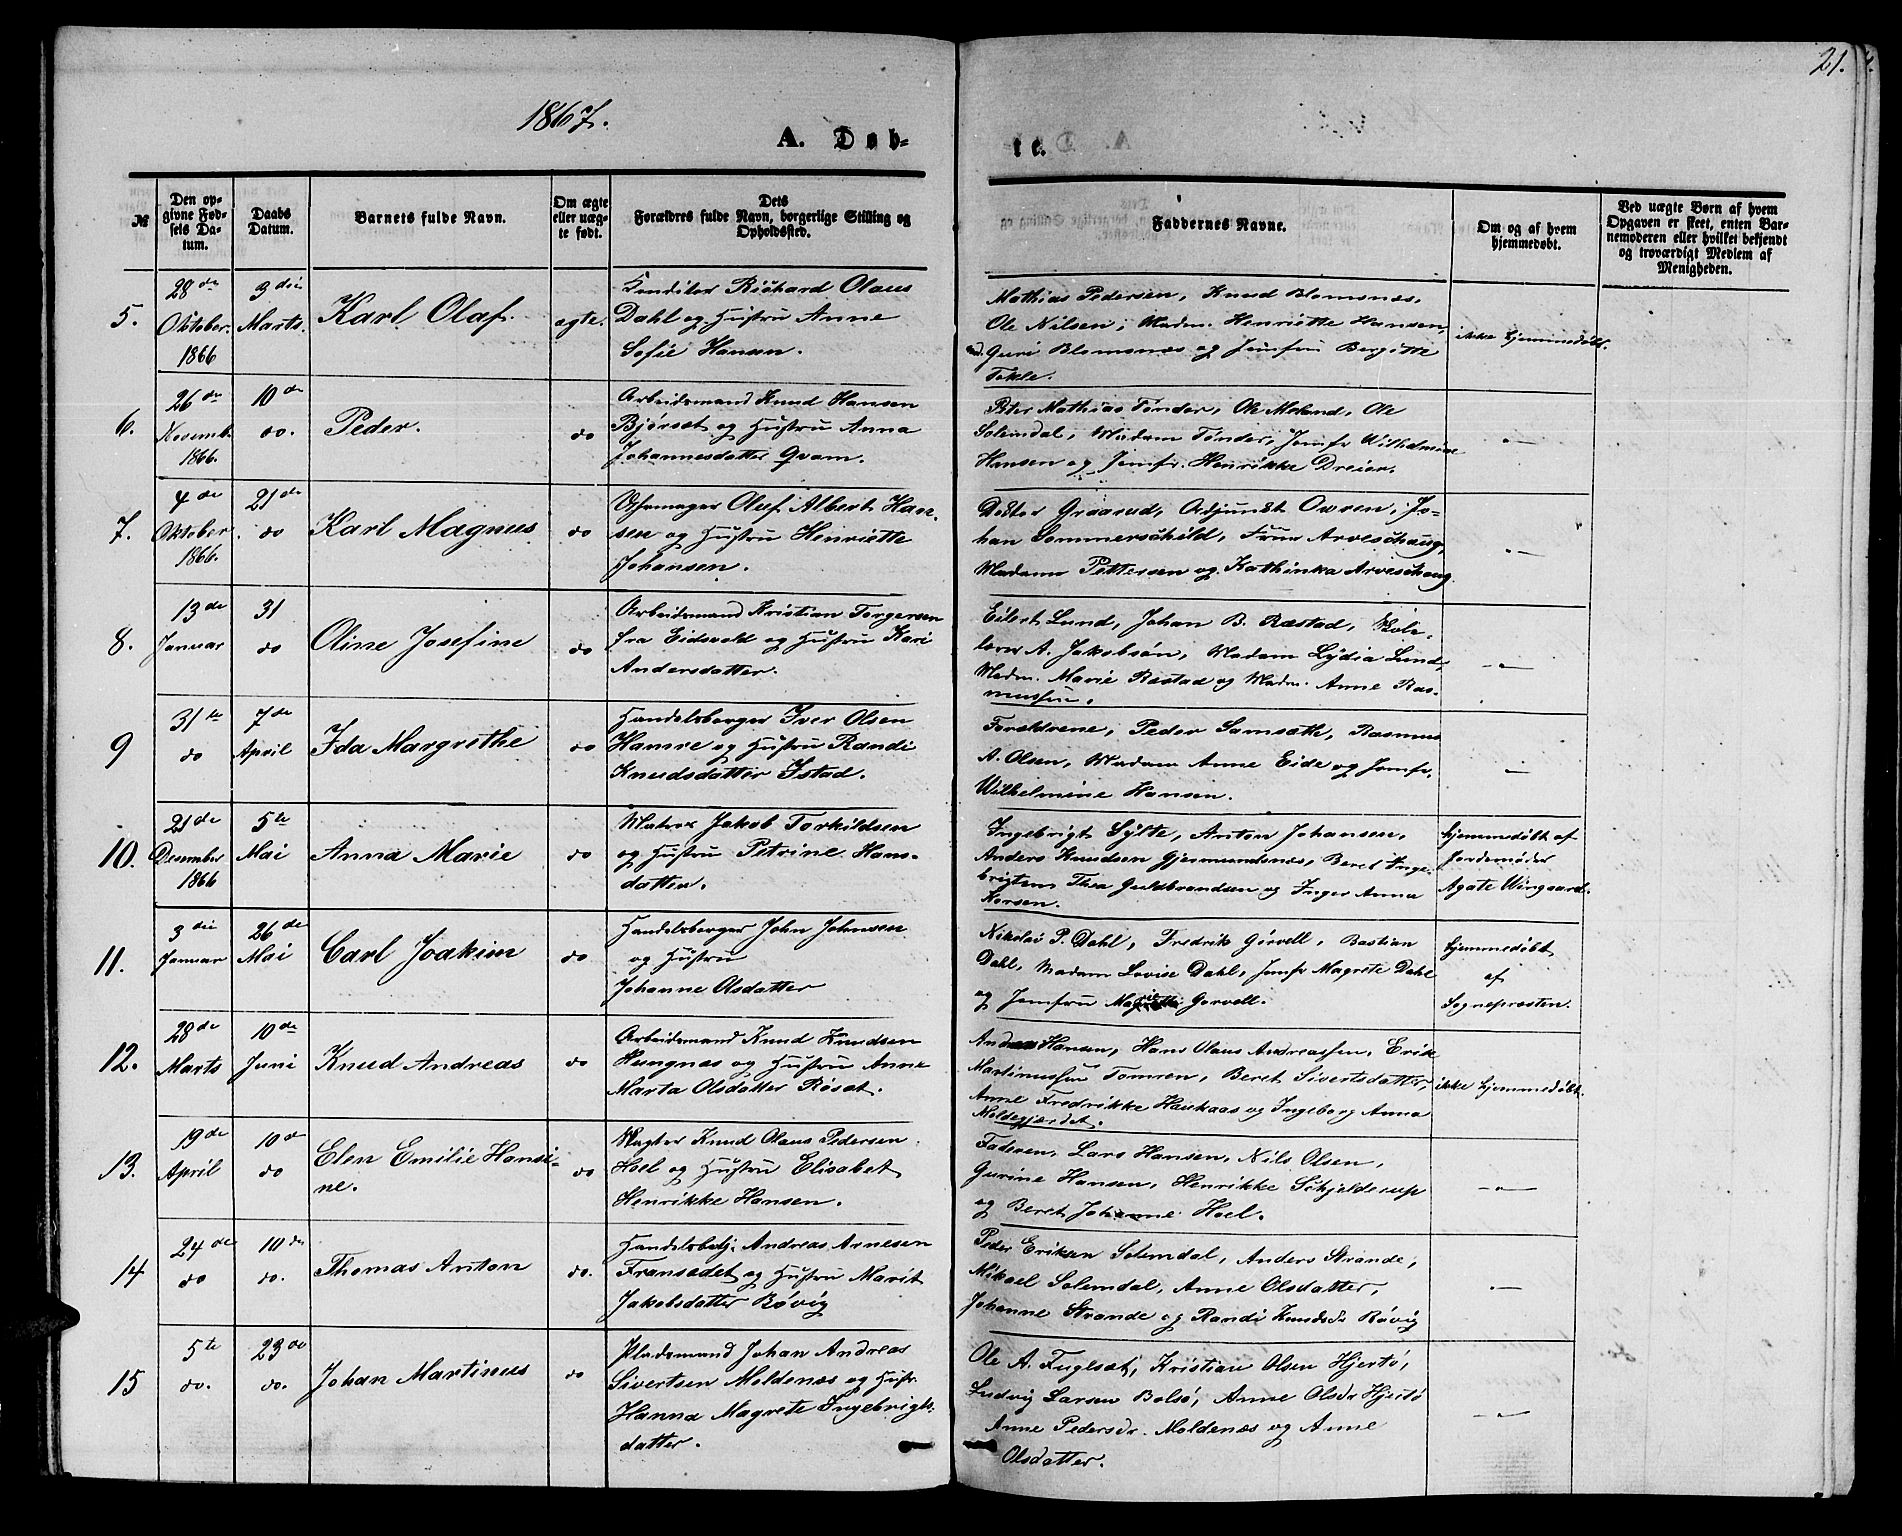 21.
1867.
A. Døb-
te.
№
Den op-
givne Fød-
sels Da-
tum.
Daabs
Datum.
Barnets fulde Navn.
Om ægte
eller uæg-
te født.
Dets
Forældres fulde Navn, borgerlige Stilling og
Opholdssted.
Faddernes Navne.
Om og af hvem
hjemmedøbt.
Ved uægte Børn af hvem
Opgaven er skeet, enten Bar-
nemoderen eller hvilket bekjendt
og troværdigt Medlem af
Menigheden.
5.
28de
Oktober
1866
3die
Marts
Karl Olaf.
ægte.
Konditor Richard Olaus
Dahl og Hustru Anne
Sofie Hansen.
Mathias Pedersen, Knud Blomsnæs,
Ole Nilsen, Madm. Henriette Hansen,
Guri Blomsnæs og Jomfru Bergitte
Tokle.
ikke hjemmedøbt.
6.
26de
Novemb.
1866.
10de
do.
Peder.
do
Arbeidsmand Knud Hansen
Bjørset og Hustru Anna
Johannesdatter Qvam.
Peter Mathias Tønder, Ole Moland, Ole
Solemdal, Madam Tønder, Jomfr Wilhelmine
Hansen og Jomfr. Henrikke Dreier.
-"-
7.
4de
Oktober
1866.
21de
do
Karl Magnus
do
Uhrmager Oluf Albert Han-
sen og Hustru Henriette
Johansen.
Doktor Graarud, Adjunkt Owren, Jo-
han Sommerschild, Frue Arveschaug,
Madame Pettersen og Kathinka Arveschaug.
-"-
8.
13de
Januar
31
do
Oline Josefine
do
Arbeidsmand Kristian Torgersen
fra Eidsvold og Hustru Kari
Andersdatter.
Eilert Lund, Johan B. Ræstad, Skole-
lærer A. Jakobsøn, Madam Lydia Lund,
Madm. Marie Ræstad og Madm. Anne Ras-
mussen.
-"-
9
31te
do
7de
April
Ida Margrethe
do
Handelsborger Iver Olsen
Hamre og Hustru Randi
Knudsdatter Istad.
Forældrene, Peder Samsæth, Rasmus
A. Olsen, Madam Anne Eide og Jomfr.
Wilhelmine Hansen.
-"-
10.
21de
Desember
1866
5te
Mai
Anna Marie
do
Matros Jakob Torkildsen
og Hustru Petrine Hans-
datter.
Ingebrigt Sylte, Anton Johansen,
Anders Knudsen Gjermundsnæs, Beret Inge-
brigtsen Thea Guldbrandsen og Inger Anna
Korsen.
hjemmedøbt af
Jordemoder
Agate Wingaard.
11.
3die
Januar
26de
Mai
Carl Joakim
do
Handelsborger John Johnsen
og Hustru
Johanne Olsdatter
Nikolai P. Dahl, Fredrik Gørvell, Bastian
Dahl, Madam Lovise Dahl, Jomfr Magrete Dahl
og Jomfru Gørvell.
hjemmedøbt
af
Sognepresten.
12.
28de
Marts
10de
Juni
Knud Andreas
do
Arbeidsmand Knud Knudsen
Hungnæs og Hustru Anne
Marta Olsdatter Røset.
Andreas Hansen, Hans Olaus Andreassen, Erik
Martinussen Tomren, Beret Sivertsdatter,
Anne Fredrikke Haukaas og Ingeborg Anna
Moldegjærdet.
ikke hjemmedøbt.
13.
19de
April
10de
do
Elen Emilie Hansi-
ne.
do
Vægter Knud Olaus Pedersen
Hoel og Hustru Elisabet
Henrikke Hansen.
Faderen, Lars Hansen, Nils Olsen,
Gurine Hansen, Henrikke Schjelderup
og Beret Johanne Hoel.
-"-
14
24de
do
10de
do.
Thomas Anton
do.
Handelsbetj. Andreas Arnesen
Fransædet og Hustru Marit
Jakobsdatter Bøvig
Peder Eriksen Solemdal, Anders Strande,
Mikael Solemdal, Anne Olsdatter,
Johanne Strande og Randi Knudsdr Røvig
-"-
15
5te
do.
23de
do.
Johan Martinus
do
Pladsmand Johan Andreas
Sivertsen Moldenæs og Hustr.
Hanna Magrete Ingebrigts-
datter.
Ole A. Fuglset, Kristian Olsen Hjertø,
Ludvig Larsen Bolsø, Anne Olsdr Hjertø
Anne Pedersdr. Moldenæs og Anne
Olsdatter.
-"-